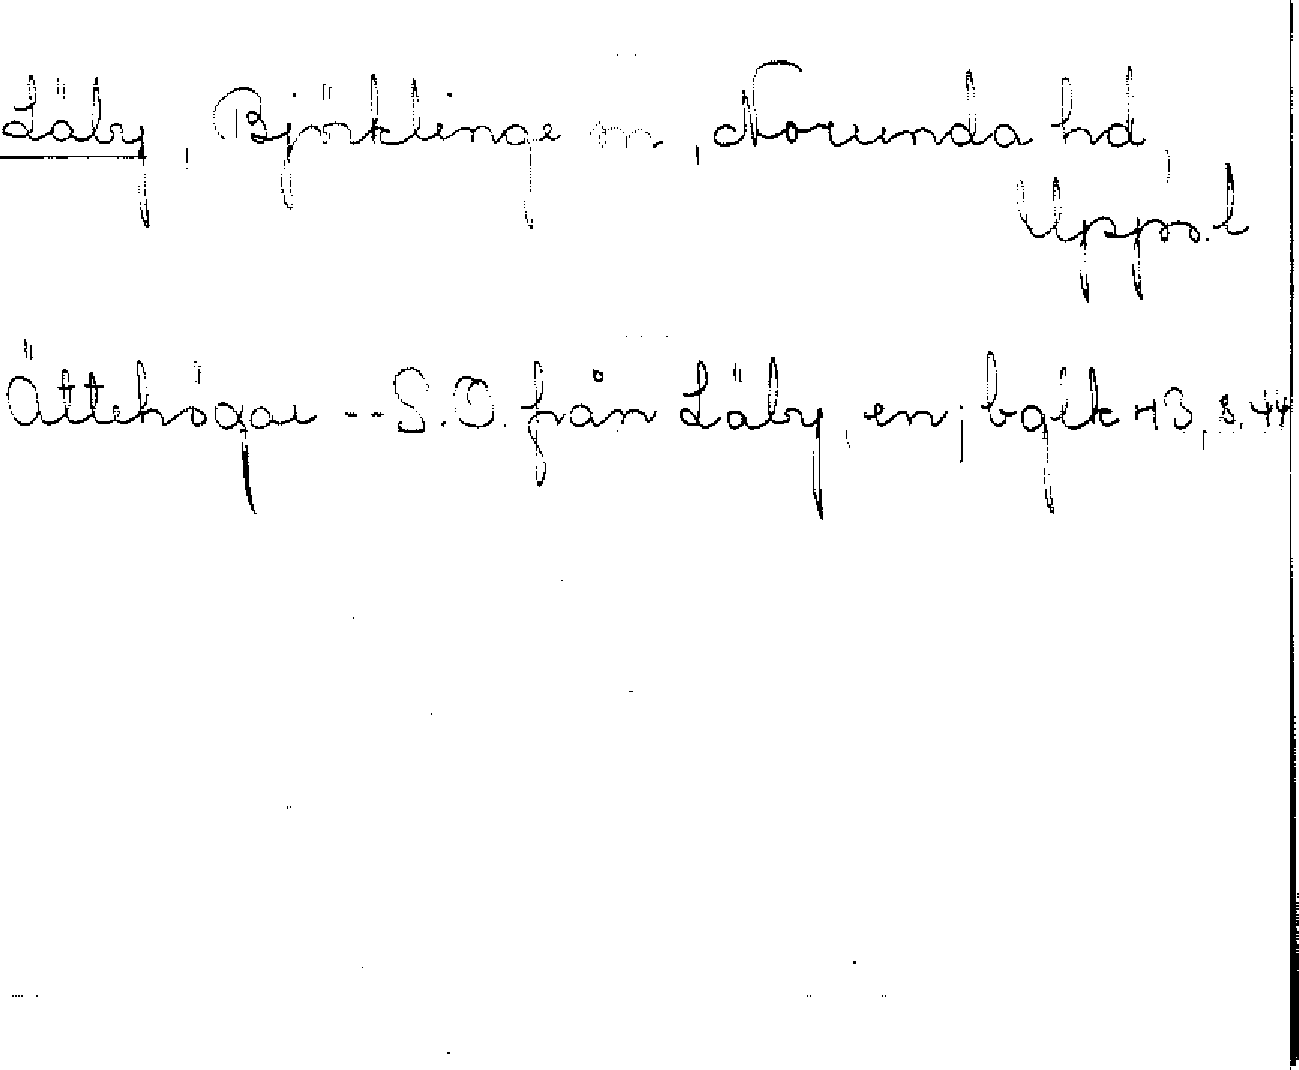 Läby, Björklinge sn, Norunda hd,
Upps. l
Ättehögar -- S.O. från Läby, en; bglk 43, s. 44